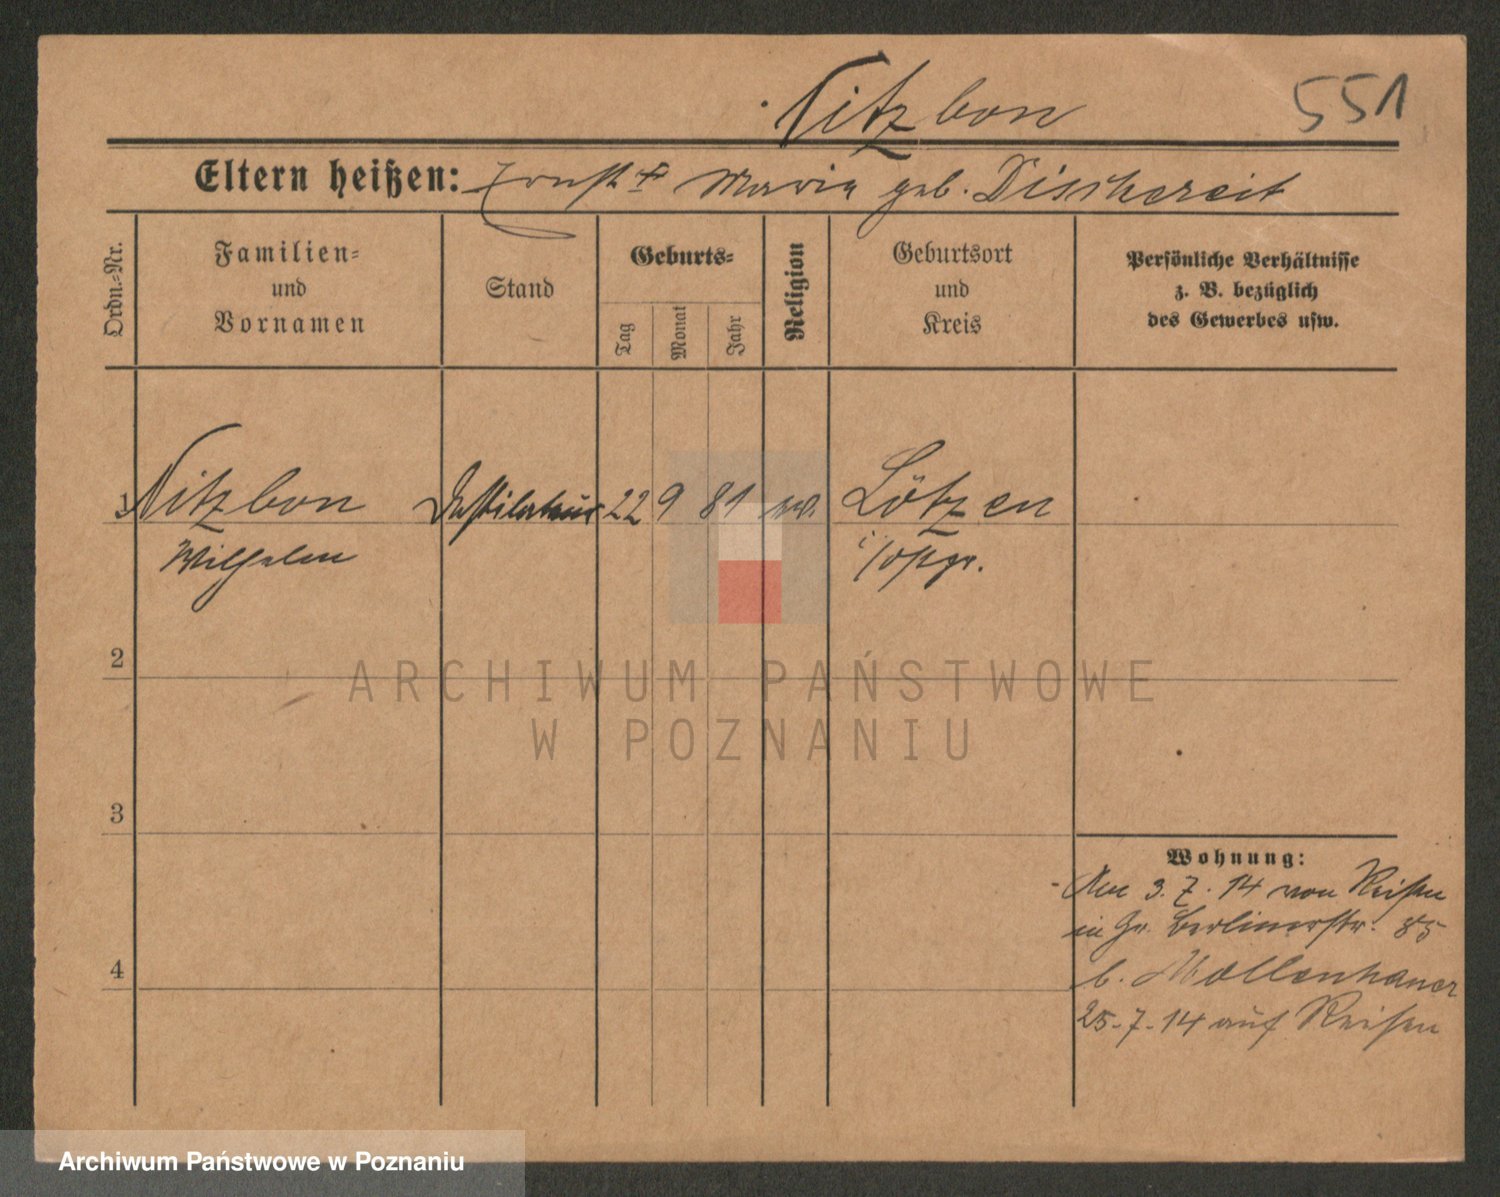 Nitzbon
551
Eltern heißen: Ernst † Maria geb. Dischereit
Ordn.-Nr.
Familien-
und
Vornamen
Stand
Geburts-
Tag
Monat
Jahr
Religion
Geburtsort
und
Kreis
Persönliche Verhältnisse
z. B. bezüglich
des Gewerbes usw.
1 Nitzbon Destilateur 22 9 81 ev. Lötzen
Wilhelm i/Ostpr.
2
ARCHIWUM PAŃSTWOWE
W POZNANIU
3
Wohnung:
3. 7. 14 von Reisen
in Gr. Berlinerstr. 85
4
b. Mollenhauer
25.7.14 auf Reisen
Archiwum Państwowe w Poznaniu